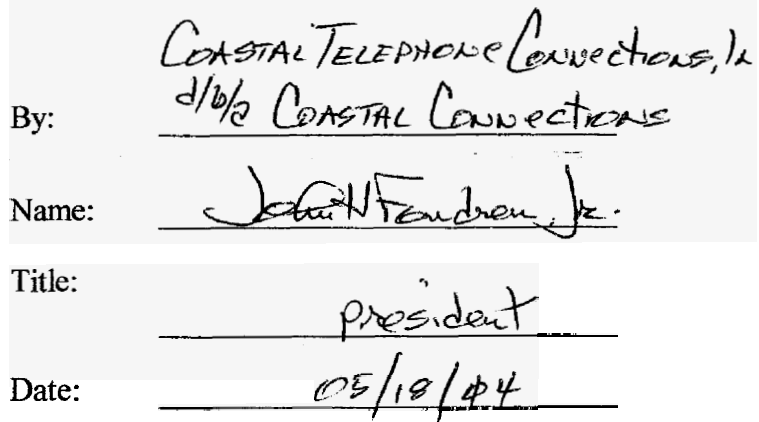 COASTAL TELEPHONE CONNECTIONS, In
By: d/b/a COASTAL CONNECTIONS
Name: John H Fondren, Jr.
Title: president
Date: 05/18/04